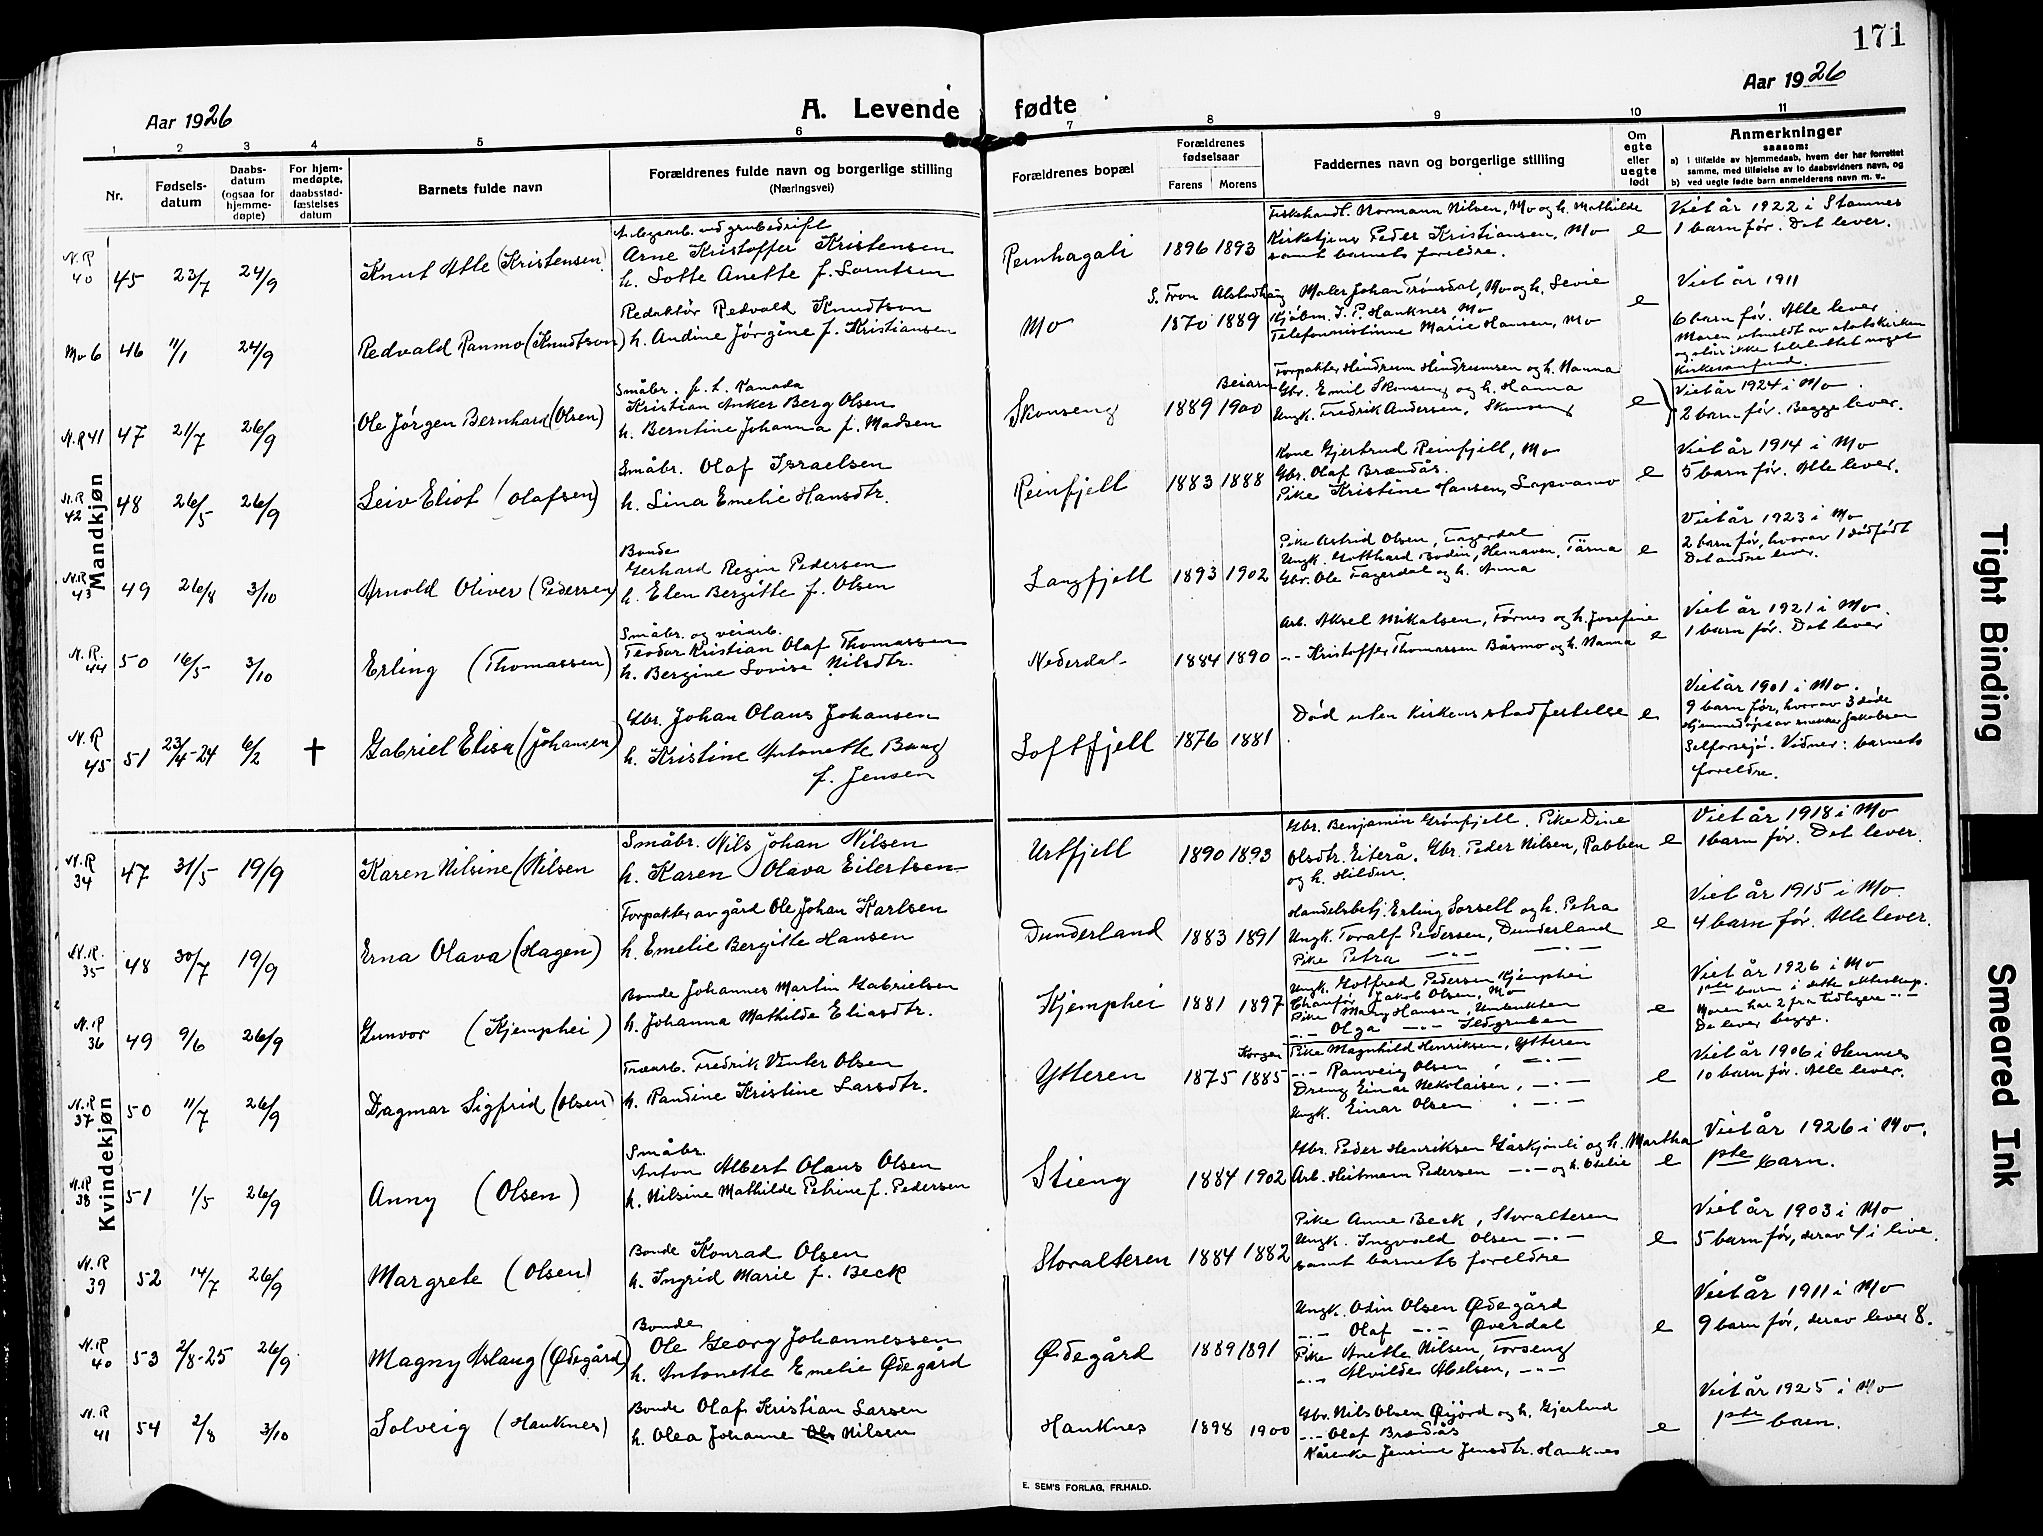 171
Aar 1926
A. Levende fødte
Aar 1926
1 2 3 4 5 6 7 8 9 10 11
Nr.
Fødsels-
datum
Daabs-
datum
(ogsaa for
hjemme-
døpte)
For hjem-
medøpte,
daabsstad-
fæstelses
datum
Barnets fulde navn
Forældrenes fulde navn og borgerlige stilling
(Næringsvei)
Forældrenes bopæl
Forældrenes
fødselsaar
Farens Morens
Faddernes navn og borgerlige stilling
Om
egte
eller
uegte
født
Anmerkninger
saasom:
a) i tilfælde av hjemmedaab, hvem der har forrettet
samme, med tilføielse av to daabsvidners navn, og
b) ved uegte fødte barn anmelderens navn m. v.
Mandkjøn
N.R 40 45 23/7 24/9 Knut Atle (Kristensen)
ved grubedrift
Arne Kristoffer Kristensen
h. Lotte Anette f. Lorntsen
1896 1893
Fiskehandl. Normann Nilsen, Mo og h. Mathilde
Kirketjener Peder Kristiansen, Mo
samt barnets foreldre.
e
Viet år 1922 i Stamnes
1 barn før. Det lever.
Mo 6 46 11/1 24/9 Redvald Ranmo (Knudtson)
Redaktør Redvald Knudtson
h. Andine Jørgine f. Kristiansen
Mo
S. Fron Alstadhaug
1870 1889
Maler Johan Trønsdal, Mo og h. Sevie
Kjøbm. I. P. Hauknes, Mo
Telefonnistinne Marie Hansen, Mo
e
Viet år 1911
6 barn før. Alle lever.
Moren utmeldt av statskirken
og ikke tilsluttet noget
kirkesamfund.
N.R 41 47 21/7 26/9 Ole Jørgen Bernhard (Olsen)
Småbr. f. t. Kanada
Kristian Anker Berg Olsen
h. Berntine Johanna f. Madsen
Skonseng
Beiarn
1889 1900
Forpakter Hindrum Hindrumsen og h. Nanna
Gbr. Emil Skonseng og h. Hanna
Ungk. Fredrik Andersen, Skonseng
e
Viet år 1924 i Mo.
2 barn før. Begge lever.
N.R 42 48 26/5 26/9 Leiv Eliot (Olafsen)
Småbr. Olaf Israelsen
h. Lina Emelie Hansdtr.
Reinfjell
1883 1888
Kone Gjertrud Reinfjell, Mo
Gbr. Olaf Brændås.
Pike Kristine Hansen, Lapvamo
e
Viet år 1914 i Mo
5 barn før. Alle lever.
N.R 43 49 26/8 3/10 Arnold Oliver (Pedersen)
Bonde
Gerhard Regin Pedersen
h. Elen Bergitte f. Olsen
Langfjell
1893 1902
Pike Astrid Olsen, Fagerdal
Ungk. Gotthard Bodin, Hemaven, Tärna
Gbr. Ole Fagerdal og h. Anna
e
Viet år 1923 i Mo
2 barn før, hvorav 1 dødfødt
Det andre lever.
N.R. 44 50 16/5 3/10 Erling (Thomassen)
Småbr. og veiarb.
Teodor Kristian Olaf Thomassen
h. Bergine Lovise Nilsdtr.
Nederdal
1884 1890
Arb. Aksel Mikalsen, Førnes og h. Josefine
-"- Kristoffer Thomassen Båsmo og h. Nanna
e
Viet år 1921 i Mo.
1 barn før. Det lever
N.R 45 51 23/4-24 6/2 † Gabriel Elisa (Johansen)
Gbr. Johan Olaus Johansen
h. Kristine Antonette Baag
f. Jensen
Loftfjell
1876 1881
Død uten kirkens stadfestelse
e
Viet år 1901 i Mo.
9 barn før, hvorav 3 døde
Hjemmedøpt av Jakobsen
Selforssjø. Vidner: barnets
foreldre.
Kvindekjøn
N.R 34 47 31/5 19/9 Karen Nilsine (Nilsen
Småbr. Nils Johan Nilsen
h. Karen Olava Eilertsen
Urtfjell
1890 1893
Gbr. Benjamin Grønfjell. Pike Dine
Olsdtr. Eiterå. Gbr. Peder Nilsen, Rabben
og h. Hildur.
e
Viet år 1918 i Mo
1 barn før. Det lever.
N.R. 35 48 30/7 19/9 Erna Olava (Hagen)
Forpakter av gård Ole Johan Karlsen
h. Emelie Bergitte Hansen
Dunderland
1883 1891
Handelsbetj. Erling Sorsell og h. Petra
Ungk. Toralf Pedersen, Dunderland
Pike Petra -"- -"-
e
Viet år 1915 i Mo
4 barn før. Alle lever.
N.R 36 49 9/6 26/9 Gunvor (Kjemphei)
Bonde Johannes Martin Gabrielsen
h. Johanna Mathilde Eliasdtr.
Kjemphei
1881 1897
Ungk. Gotfred Pedersen Kjemphei
Chauför Jakob Olsen, Mo
Pike Mary Hansen, Umbukten
-"- Olga -"- Ildgruben
e
Viet år 1926 i Mo
1ste barn i dette ekteskap.
Moren har 2 fra tidligere -"-
De lever begge.
N.R 37 50 11/7 26/9 Dagmar Sigfrid (Olsen)
Træarb. Fredrik Venter Olsen
h. Paudine Kristine Larsdtr.
Ytteren
Korgen
1875 1885
Pike Magnhild Henriksen, Ytteren
-"- Ranveig Olsen, -"-
Dreng Einar Nekolaisen, -"-
Ungk. Einar Olsen, -"-
e
Viet år 1906 i Hemnes
10 barn før. Alle lever.
N.R 38 51 1/5 26/9 Anny (Olsen)
Småbr.
Anton Albert Olaus Olsen
h. Nilsine Mathilde Petrine f. Pedersen
Stieng
1884 1902
Gbr. Peder Henriksen Gåskjønli og h. Martha
Arb. Heitmann Pedersen -"- og h. Otelie
e
Viet år 1926 i Mo.
1ste barn.
N.R 39 52 14/7 26/9 Margrete (Olsen)
Bonde Konrad Olsen
h. Ingrid Marie f. Beck
Storalteren
1884 1882
Pike Anne Beck, Storalteren
Ungk. Ingvald Olsen -"-
samt barnets foreldre
e
Viet år 1903 i Mo
5 barn før, derav 4 i live.
N.R 40 53 2/8-25 26/9 Magny Aslaug (Ødegård)
Bonde
Ole Georg Johannessen
h. Antonette Emelie Ødegård
Ødegård
1889 1891
Ungk. Odin Olsen Ødegård
-"- Olaf -"- Øverdal
Pike Anette Nilsen, Torseng
-"- Alvilde Abelsen, -"-
e
Viet år 1911 i Mo
9 barn før, derav lever 8.
N.R 41 54 2/8 3/10 Solveig (Hauknes)
Bonde Olaf Kristian Larsen
h. Olea Johanne Nilsen
Hauknes
1898 1900
Gbr. Nils Olsen Øijord og h. Gjerlaud
-"- Olaf Brændås
Jensine Jensdtr. Hauknes
e
Viet år 1925 i Mo
1ste barn.
E. SEM'S FORLAG, FR.HALD.
Tight Binding
Smeared Ink